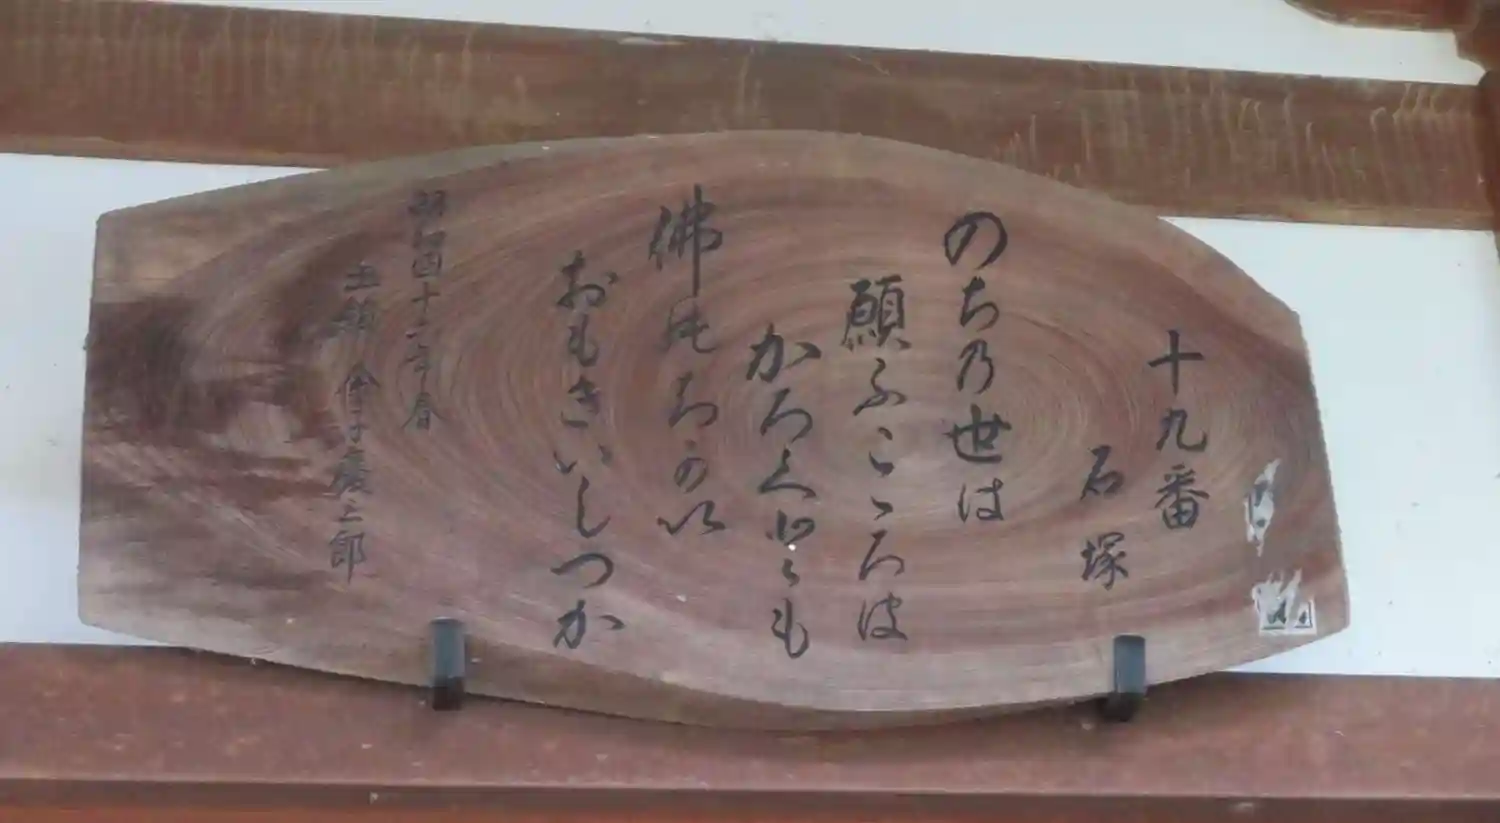 十九番
石塚
のち乃世は
願ふこゝろは
かろくとも
佛のちかい
おもきいしつか
昭和四十二年春
金子慶三郎